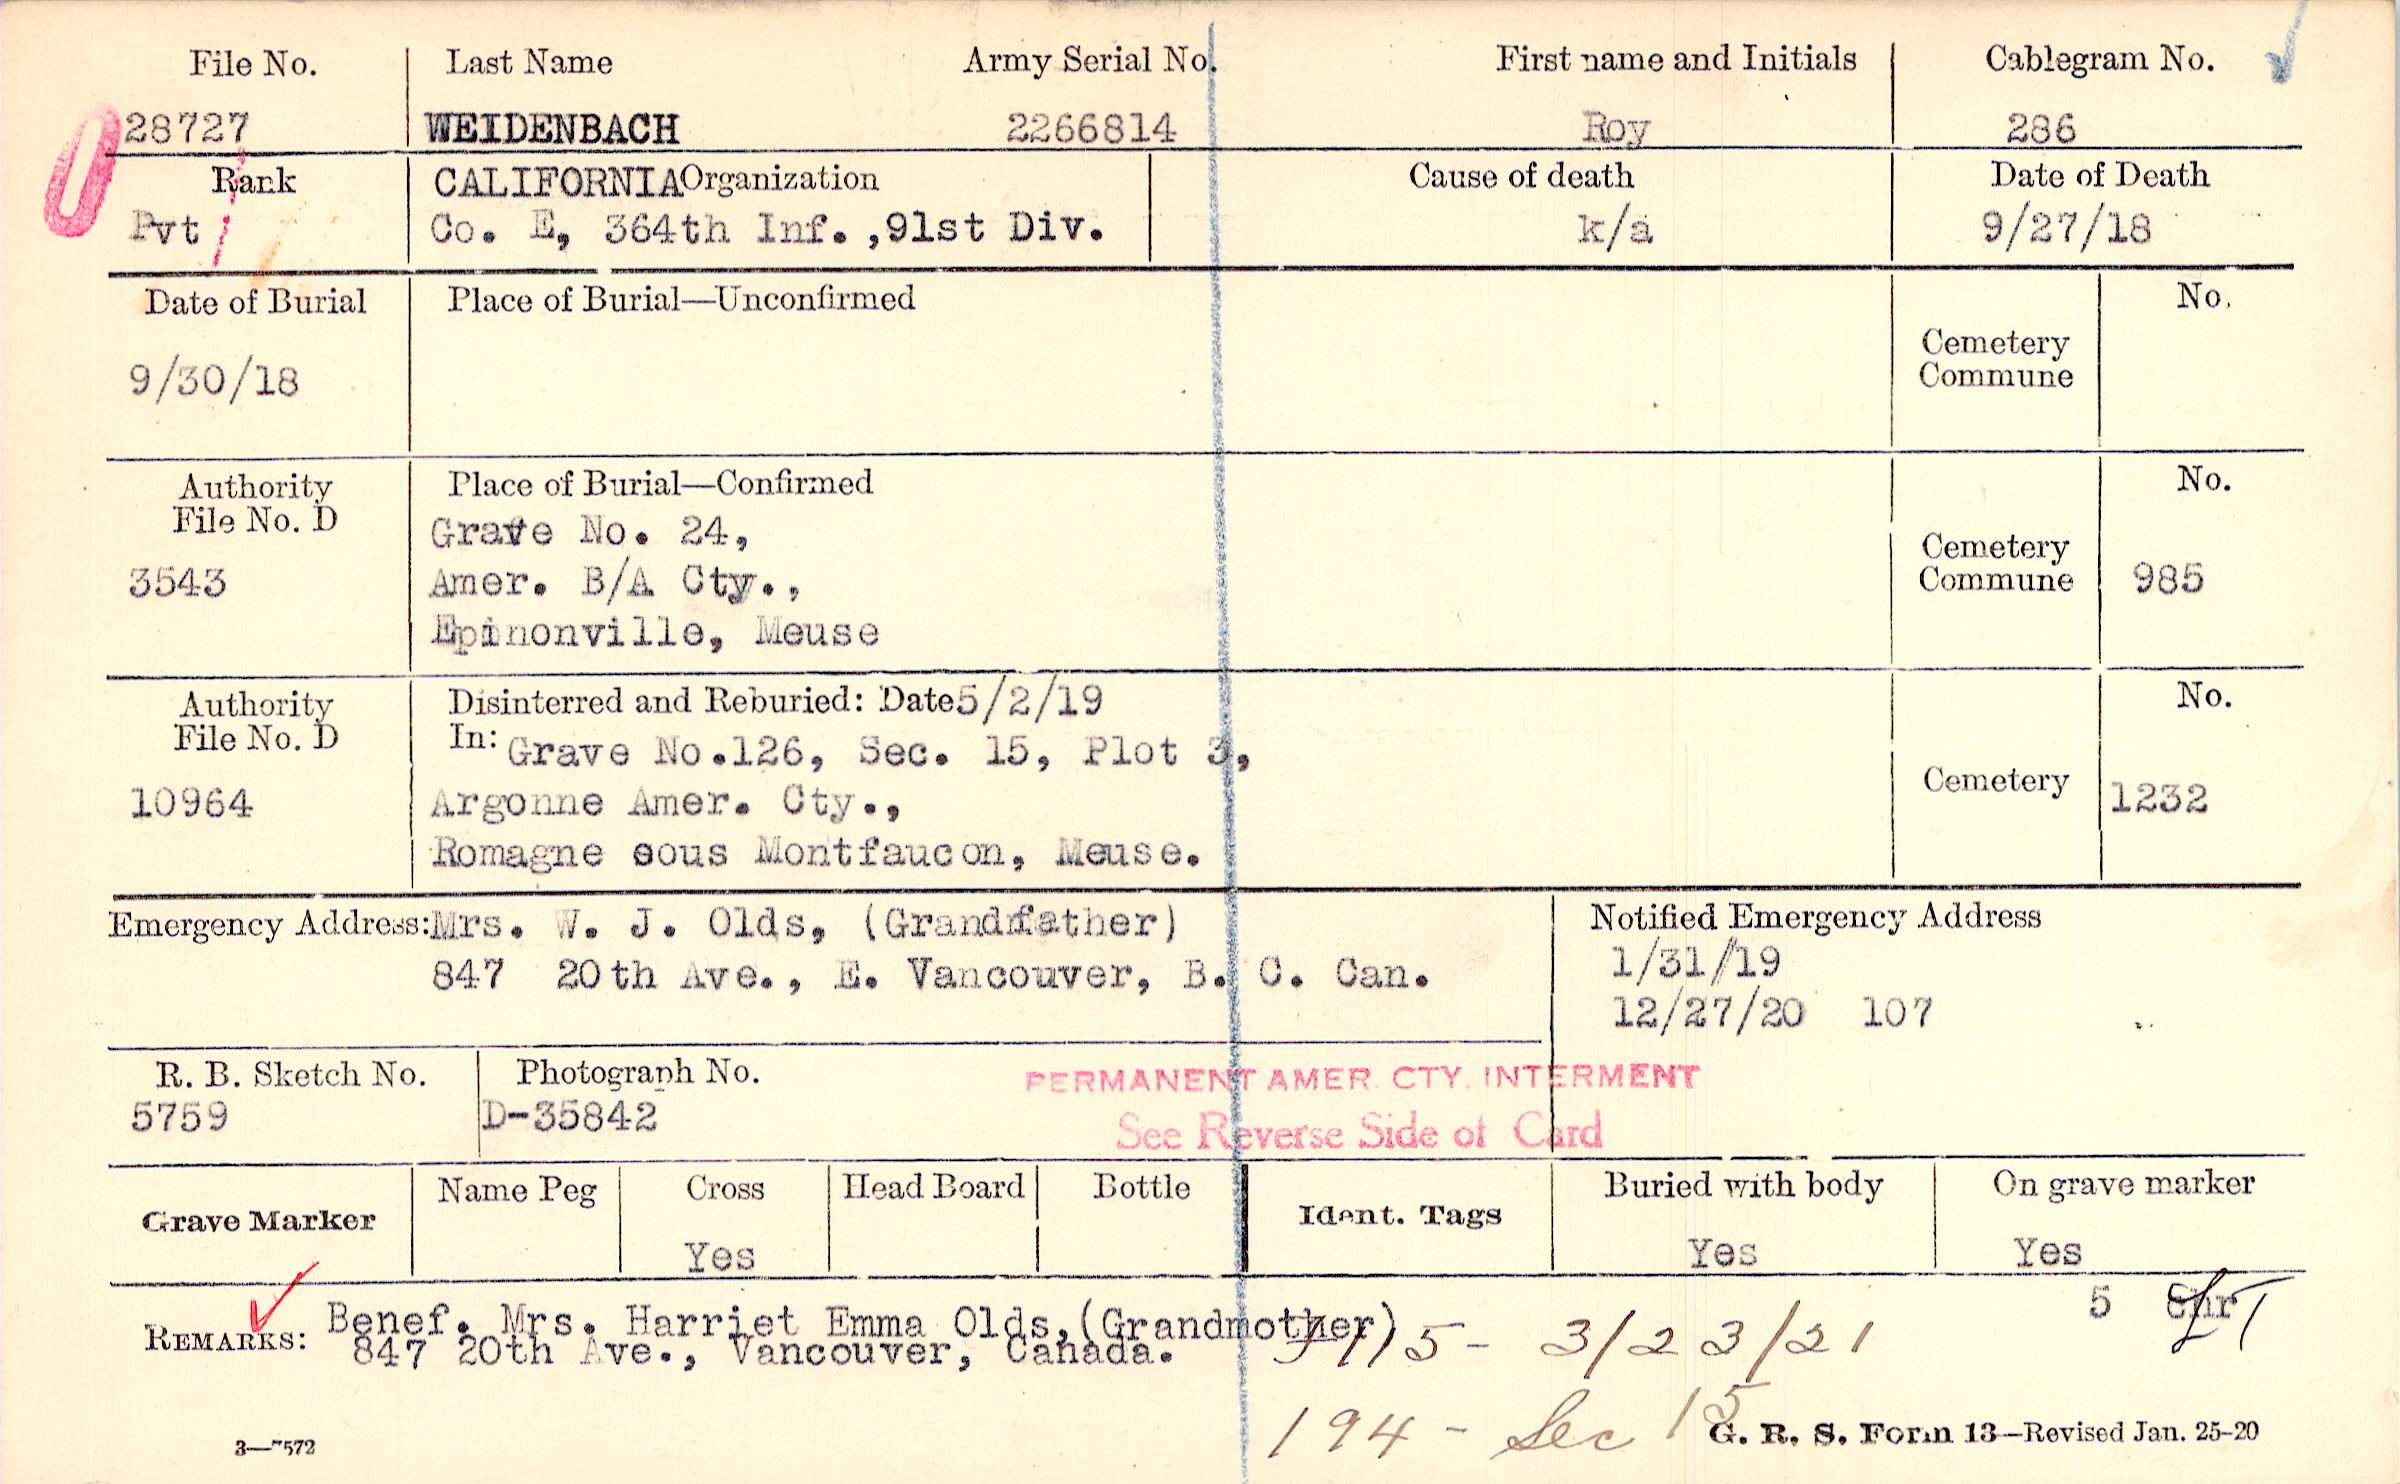 File No. Last Name Army Serial No. First name and Initials Cablegram No.
28727 WEIDENBACH 2266814 Roy 286
Rank CALIFORNIA Organization Cause of death Date of Death
Pvt Co. E, 364th Inf.,91st Div. k/a 9/27/18
Date of Burial Place of Burial—Unconfirmed No.
Cemetery
Commune
9/30/18
Authority Place of Burial—Confirmed No.
File No. D
Grave No. 24,
Cemetery
3543 Amer. B/A Cty., Commune 985
Epinonville, Meuse
Authority Disinterred and Reburied: Date 5/2/19 No.
File No. D In: Grave No.126, Sec. 15, Plot 3,
Cemetery
10964 Argonne Amer. Cty., 1232
Romagne sous Montfaucon, Meuse.
Emergency Address: Mrs. W. J. Olds, (Grandfather) Notified Emergency Address
847 20th Ave., E. Vancouver, B. C. Can. 1/31/19
12/27/20 107
R. B. Sketch No. Photograph No. PERMANENT AMER. CTY. INTERMENT
5759 D-35842 See Reverse Side of Card
Name Peg Cross Head Board Bottle Buried with body On grave marker
Grave Marker Ident. Tags
Yes Yes Yes
5
REMARKS: Benef. Mrs. Harriet Emma Olds,(Grandmother)
847 20th Ave., Vancouver, Canada. 3/23/21
194 - Sec 15
3—7572 G. R. S. Form 13—Revised Jan. 25-20